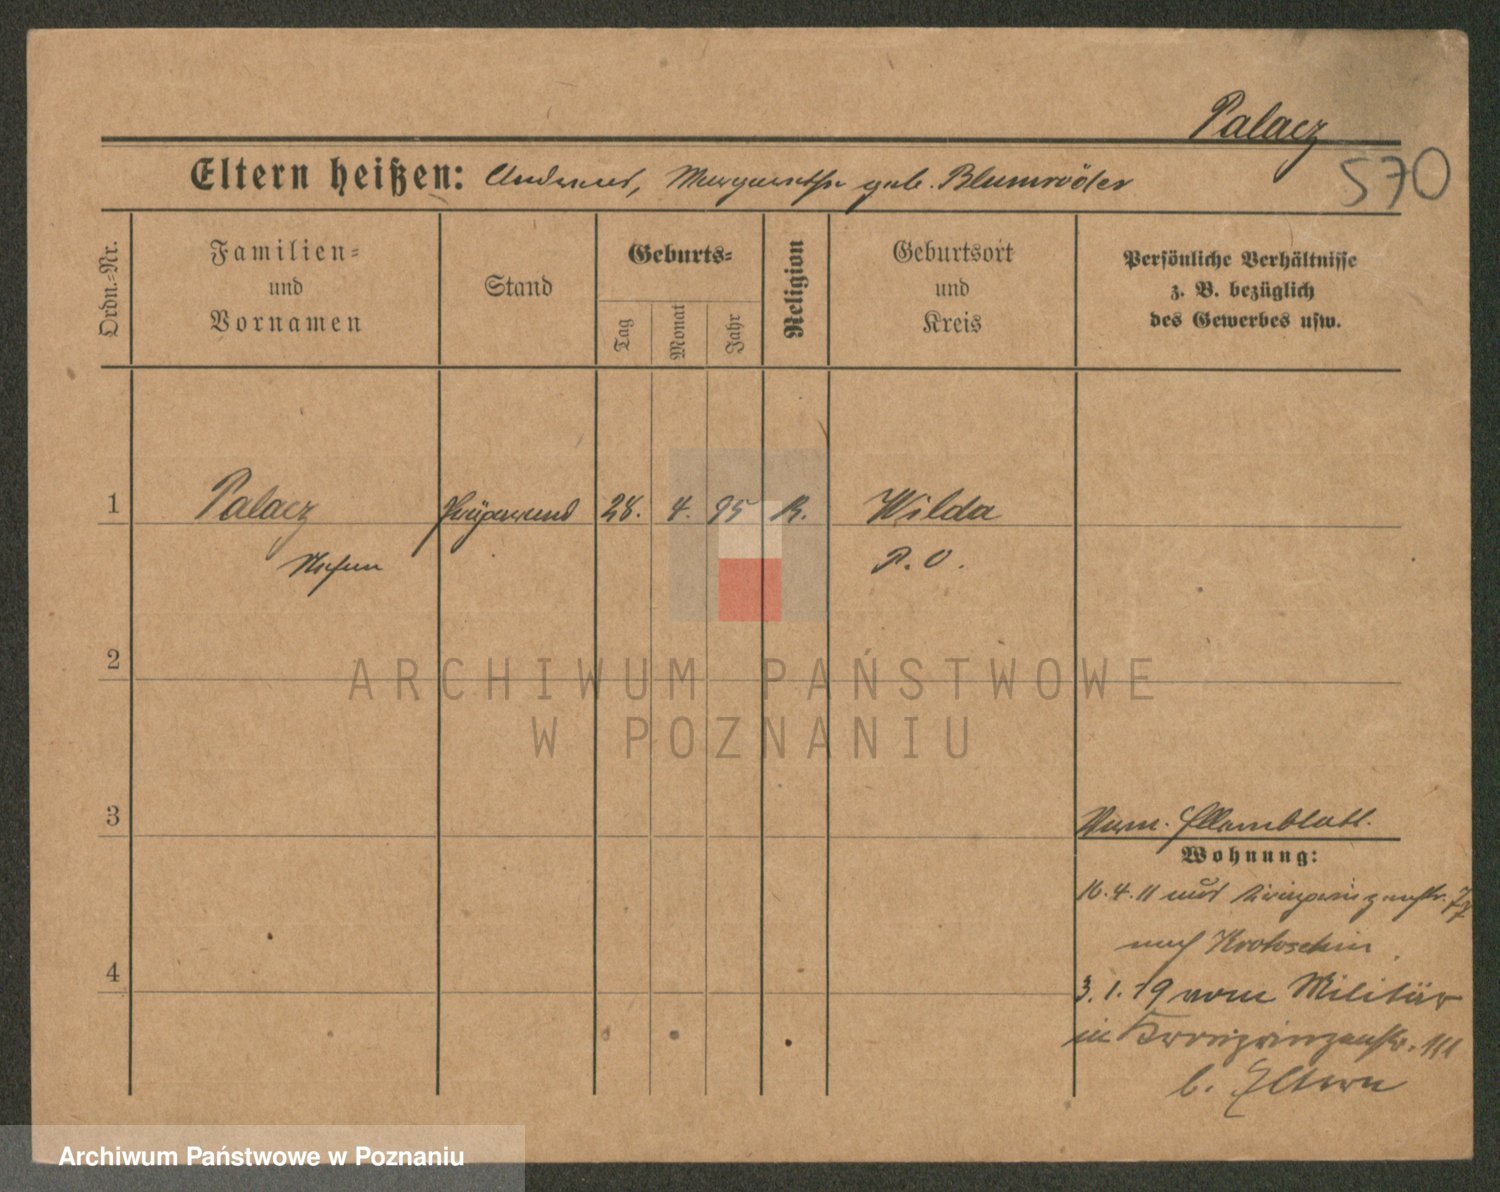 Palacz
570
Eltern heißen: Andreas, Margarethe geb. Blumröder
Ordn.-Nr.
Familien=
und
Vornamen
Stand
Geburts=
Tag
Monat
Jahr
Religion
Geburtsort
und
Kreis
Persönliche Verhältnisse
z. B. bezüglich
des Gewerbes usw.
1 Palacz 28. 4. 95 K. Wilda
P. O.
2
ARCHIWUM PAŃSTWOWE
W POZNANIU
3
Elternblatt.
Wohnung:
16. 4. 11 aus Kronprinzenstr.
nach Krotoschin
4
3. 1. 19 vom Militär
in Kronprinzenstr. 111
b. Eltern
Archiwum Państwowe w Poznaniu